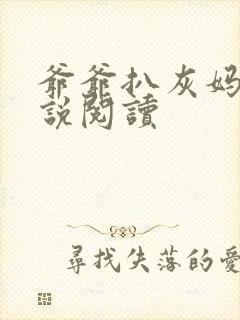 爺爺扒灰媽
說閱讀
尋找失落的愛